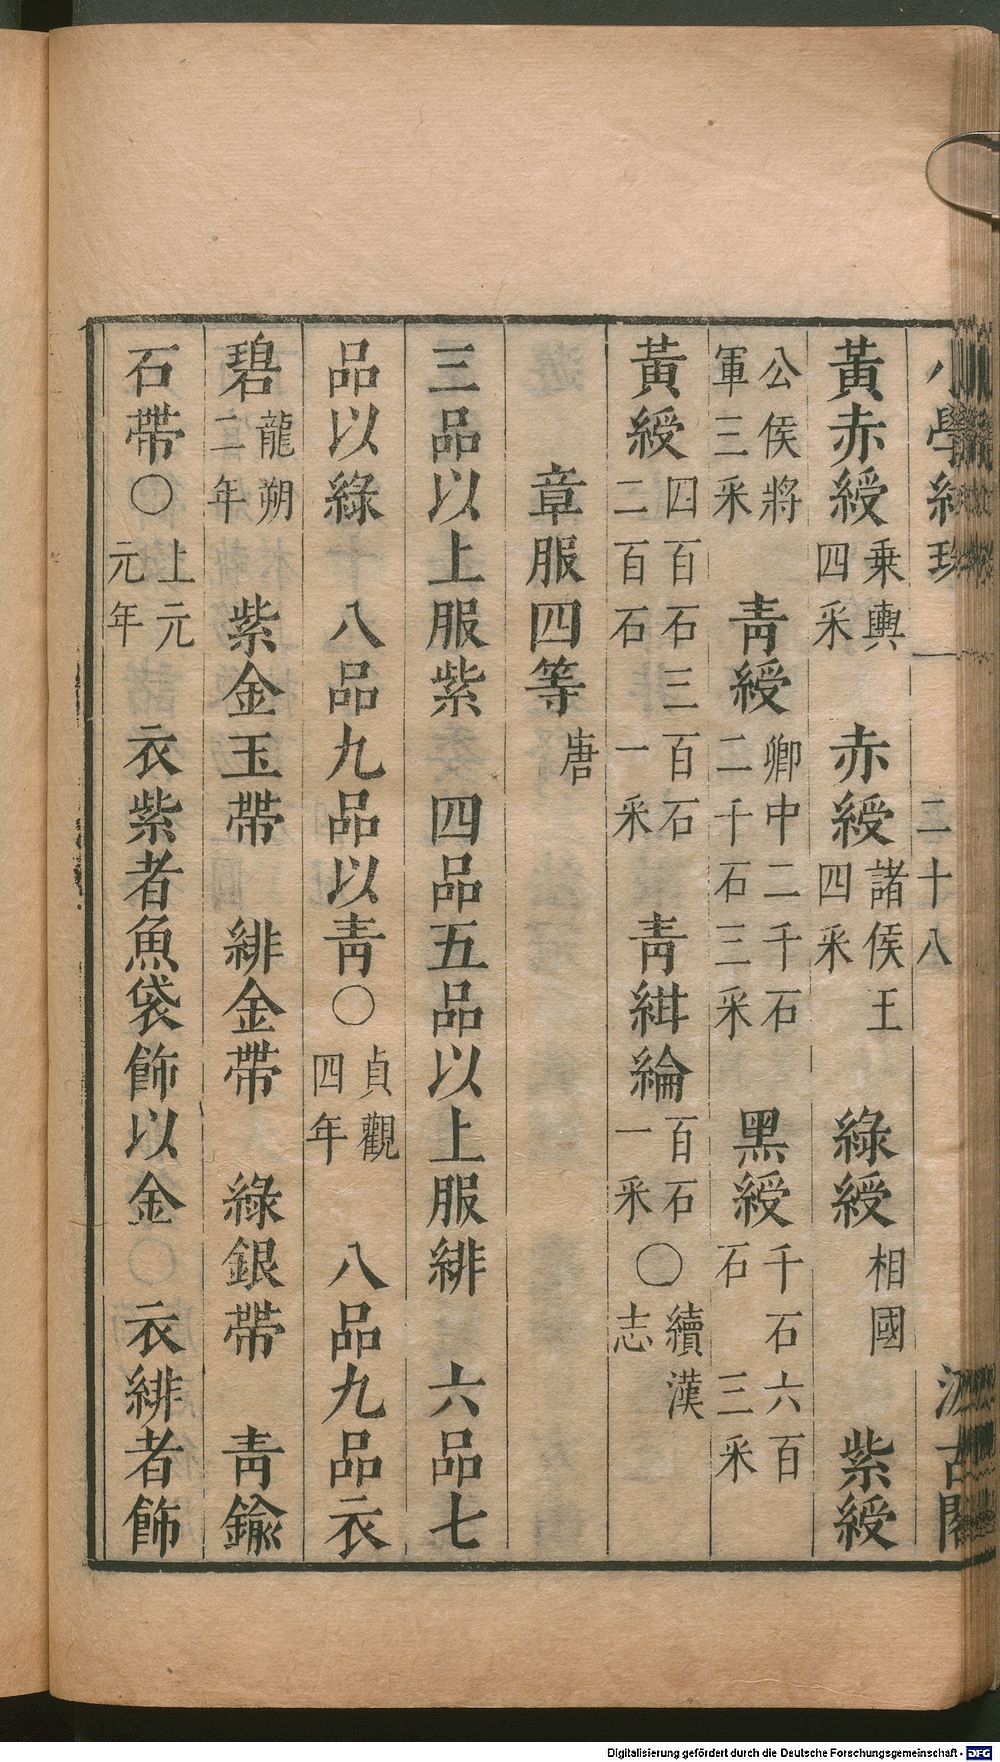 小學紺珠 二十八 汲古閣
黃赤綬乗輿四采 赤綬諸侯王四采 綠綬相國 紫綬
公侯將軍三采 青綬卿中二千石二千石三采 黑綬千石六百石三采
黃綬四百石三百石二百石一采 青紺綸百石一采〇續漢志
章服四等唐
三品以上服紫 四品五品以上服緋 六品七
品以綠 八品九品以青〇貞觀四年 八品九品衣
碧龍朔二年 紫金玉帶 緋金帶 綠銀帶 青鍮
石帶〇上元元年 衣紫者魚袋飾以金〇衣緋者飾
Digitalisierung gefördert durch die Deutsche Forschungsgemeinschaft - DFG